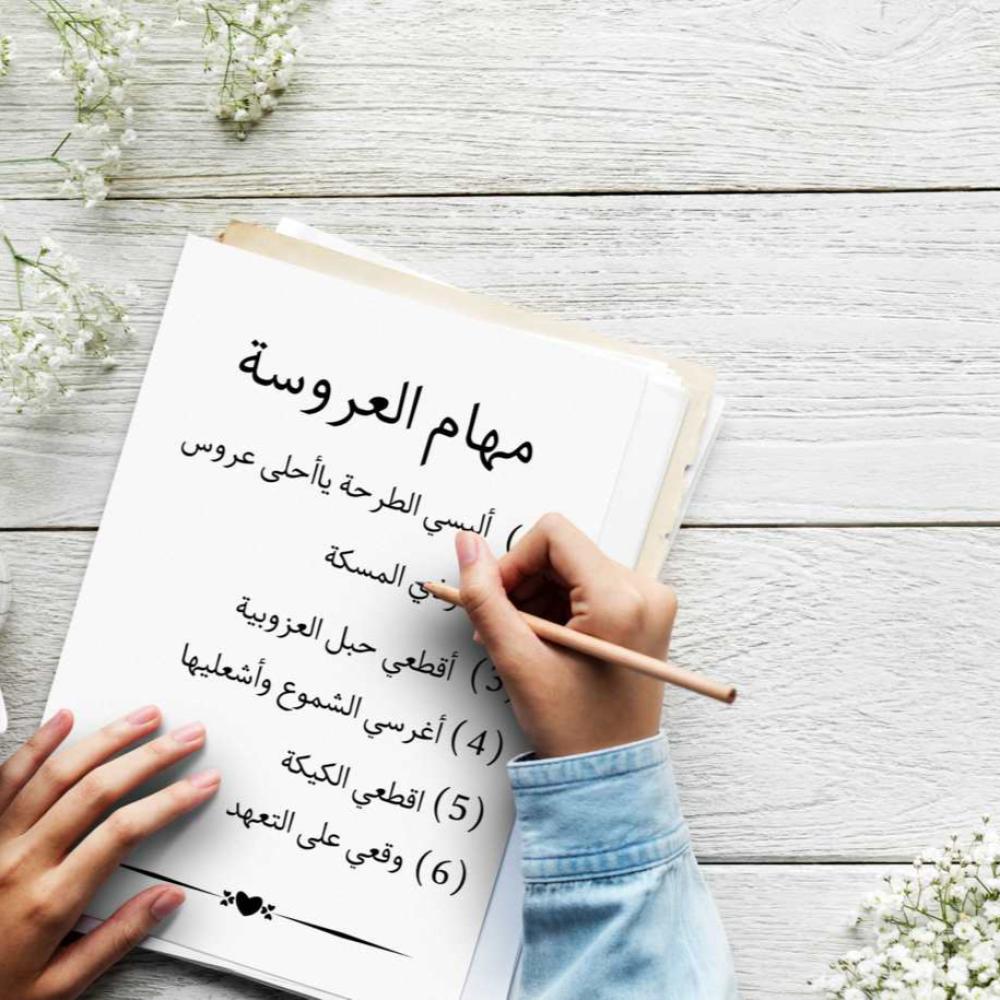 مهام العروسة
ألبسي الطرحة ياأحلى عروس
المسكة
(3) أقطعي حبل العزوبية
(4) أغرسي الشموع وأشعليها
(5) اقطعي الكيكة
(6) وقعي على التعهد